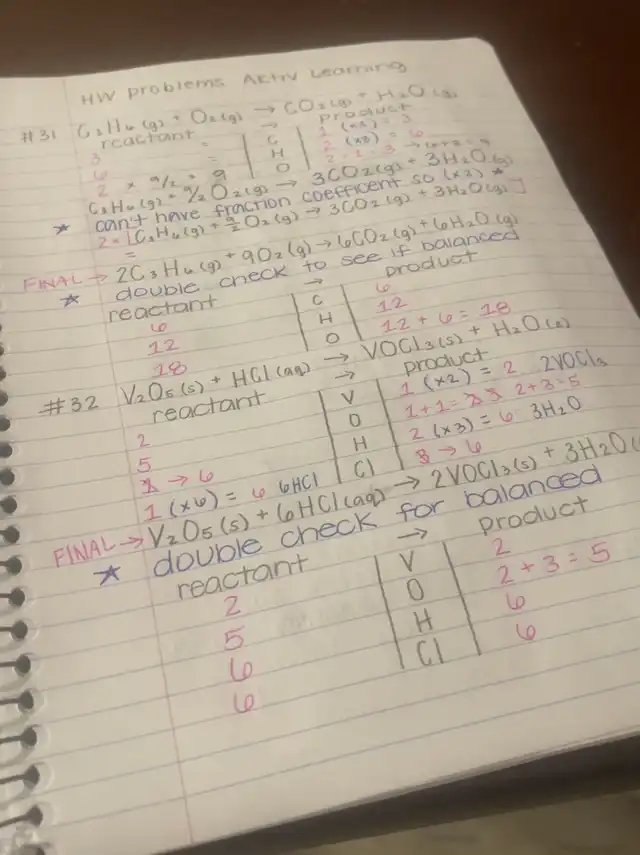 HW problems Aktiv Learning
#31 C₃H₆(g) + O₂(g) → CO₂(g) + H₂O(g)
reactant → product
3 = C 1 (x3) = 3
6 = H 2 (x3) = 6
2 x 9/2 = 9 O
C₃H₆(g) + 9/2 O₂(g) → 3CO₂(g) + 3H₂O(g)
* can't have fraction coefficent so (x2) *
2 = [C₃H₆(g) + 9/2 O₂(g) → 3CO₂(g) + 3H₂O(g)]
=
FINAL → 2C₃H₆(g) + 9O₂(g) → 6CO₂(g) + 6H₂O(g)
* double check to see if balanced
reactant → product
6 C 6
12 H 12
18 O 12 + 6 = 18
#32 V₂O₅(s) + HCl(aq) → VOCl₃(s) + H₂O(l)
reactant → product
2 V 1 (x2) = 2 2VOCl₃
5 O 1+1= 2+3=5
→ 6 H 2 (x3) = 6 3H₂O
1 (x6) = 6 6HCl Cl 3 → 6
FINAL → V₂O₅(s) + 6HCl(aq) → 2VOCl₃(s) + 3H₂O(
* double check for balanced
reactant → product
2 V 2
5 O 2 + 3 = 5
6 H 6
6 Cl 6